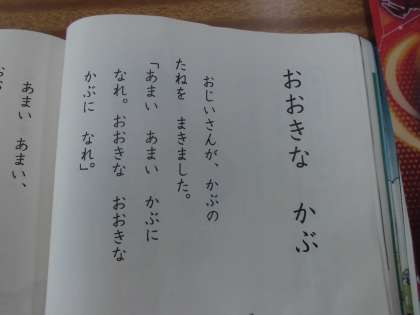 おおきな　かぶ
おじいさんが、かぶの
たねを　まきました。
「あまい　あまい　かぶに
なれ。おおきな　おおきな
かぶに　なれ。」
あまい　あまい、